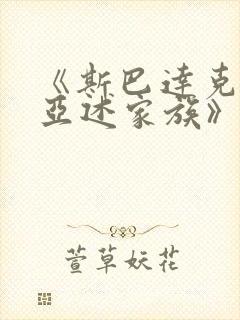 《斯巴达克
亚述家族》
萱草妖花